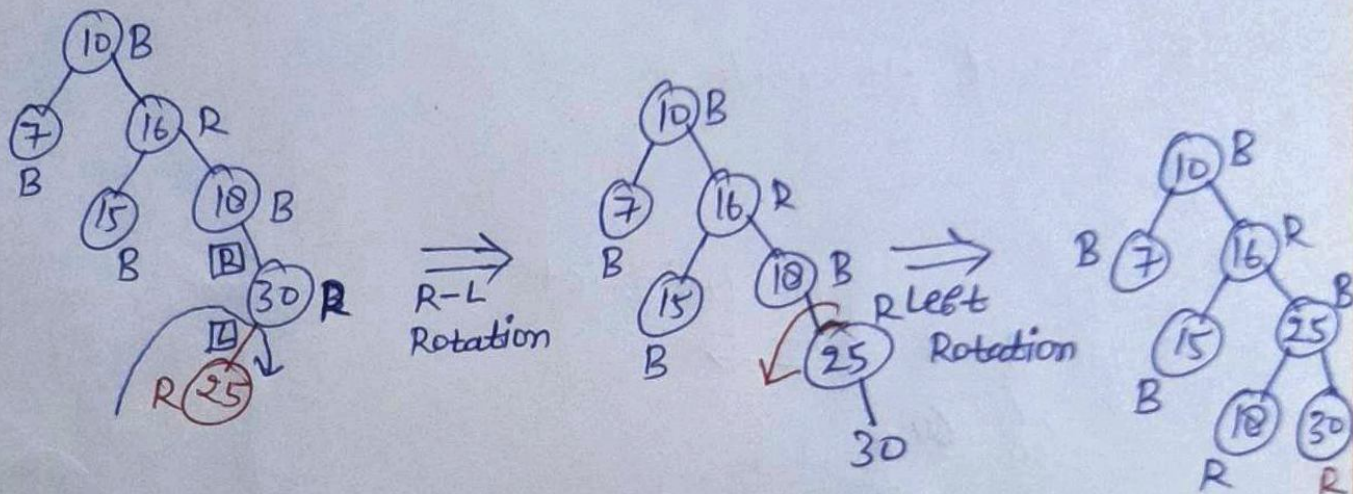 10 B
7
B
16 R
15
B
18 B
R
30 R
L
R 25
R-L
Rotation
10 B
7
B
16 R
15
B
18 B
R
25
30
Left
Rotation
10 B
B 7
16 R
15
B
B
25
18
R
30
R